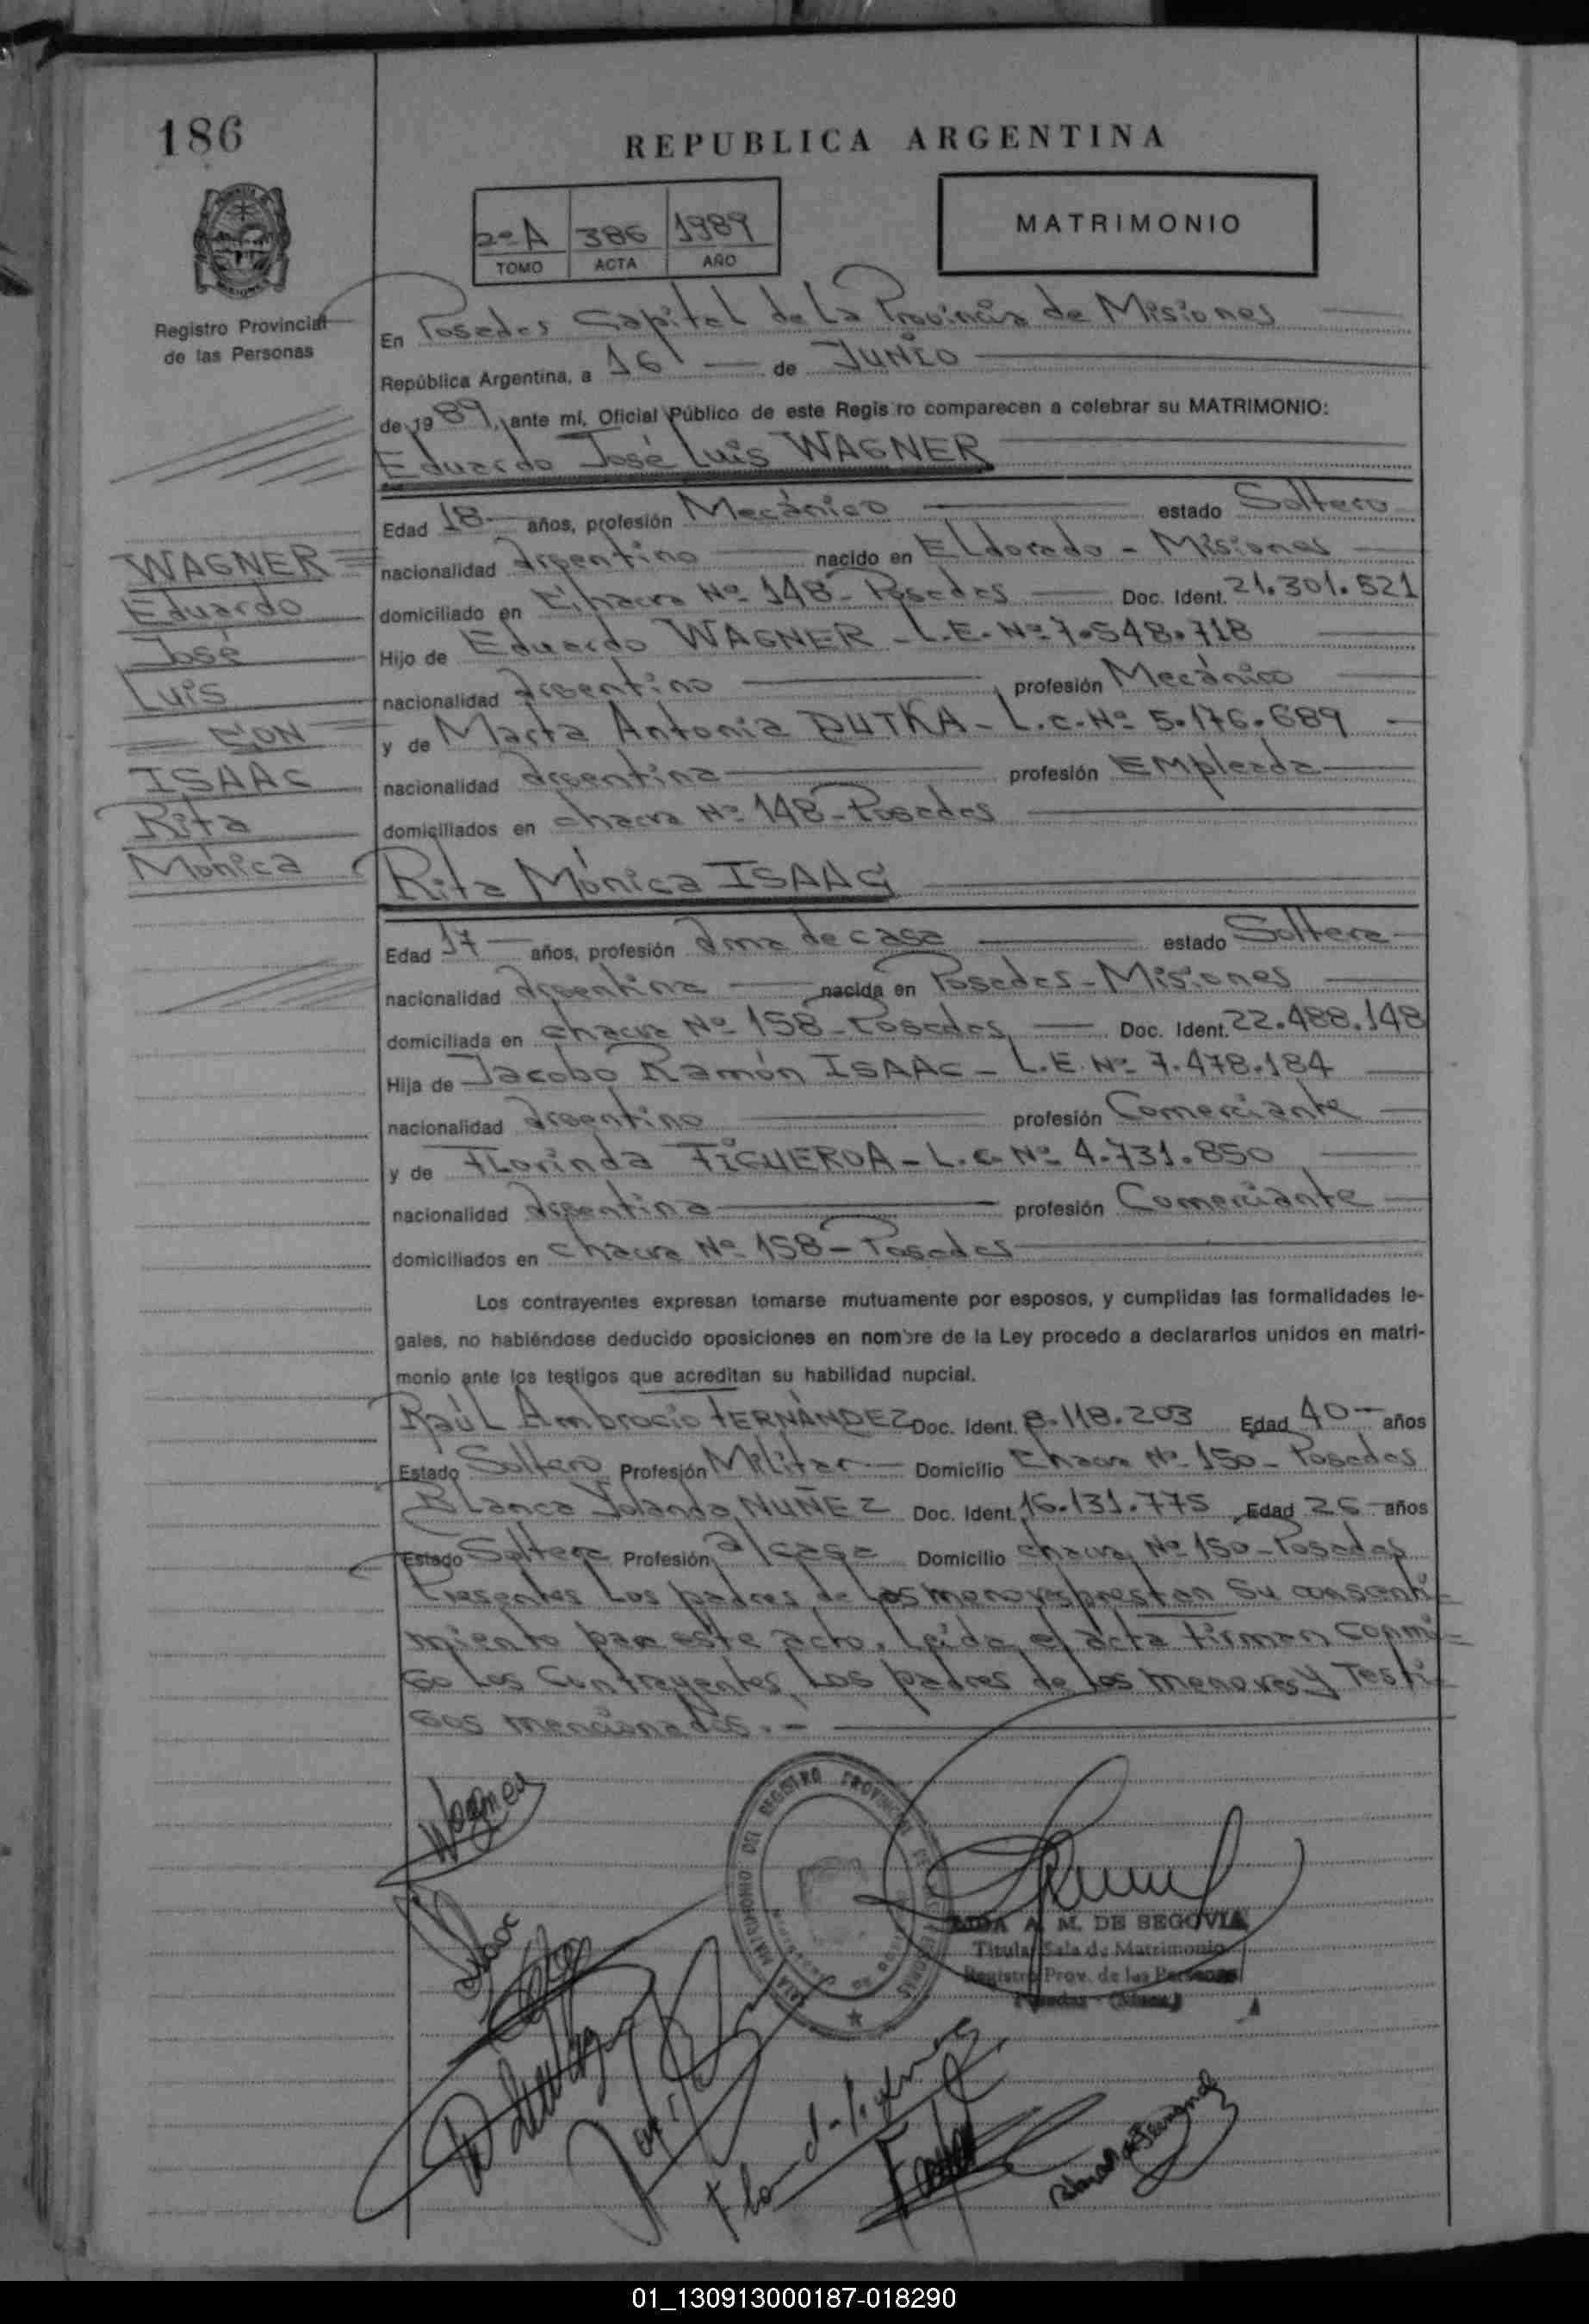 186
REPUBLICA ARGENTINA
2º A 386 1989
TOMO ACTA AÑO
MATRIMONIO
Registro Provincial
de las Personas
En Posadas Capital de La Provincia de Misiones
República Argentina, a 16 de JUNIO
de 1989, ante mí, Oficial Público de este Registro comparecen a celebrar su MATRIMONIO:
Eduardo José Luis WAGNER
Edad 18 años, profesión Mecánico estado Soltero
nacionalidad Argentino nacido en ELdorado - Misiones
domiciliado en Chacra Nº 148 - Posadas Doc. Ident. 21.301.521
Hijo de Eduardo WAGNER - L.E. Nº 7.548.718
nacionalidad Argentino profesión Mecánico
y de Marta Antonia DUTKA - L.C. Nº 5.176.689
nacionalidad Argentina profesión EMpleada
domiciliados en chacra Nº 148 - Posadas
WAGNER
Eduardo
José
Luis
CON
ISAAC
Rita
Mónica
Rita Mónica ISAAC
Edad 17 años, profesión Ama de casa estado Soltera
nacionalidad Argentina nacida en Posadas - Misiones
domiciliada en chacra Nº 158 - Posadas Doc. Ident. 22.488.148
Hija de Jacobo Ramón ISAAC - L.E. Nº 7.478.184
nacionalidad Argentino profesión Comerciante
y de FLorinda FIGUEROA - L.C. Nº 4.731.850
nacionalidad Argentina profesión Comerciante
domiciliados en chacra Nº 158 - Posadas
Los contrayentes expresan tomarse mutuamente por esposos, y cumplidas las formalidades le-
gales, no habiéndose deducido oposiciones en nombre de la Ley procedo a declararlos unidos en matri-
monio ante los testigos que acreditan su habilidad nupcial.
Raúl Ambrocio FERNÁNDEZ Doc. Ident. 8.118.203 Edad 40 años
Estado Soltero Profesión Militar Domicilio Chacra Nº 150 - Posadas
BLanca Yolanda NUÑEZ Doc. Ident. 16.131.775 Edad 26 años
Estado Soltera Profesión a/casa Domicilio chacra Nº 150 - Posadas
Presentes Los padres de Los menores prestan Su consenti-
miento para este acto, Leída el acta Firman Conmi-
go Los Contrayentes, Los padres de los menores y Testi-
gos mencionados.-
Wagner
Isaac
SALA MATRIMONIO DEL REGISTRO PROVINCIAL DE LAS PERSONAS
LIDA A. M. DE SEGOVIA
Titular Sala de Matrimonio
Registro Prov. de las Personas
Posadas - (Mnes.)
01_130913000187-018290